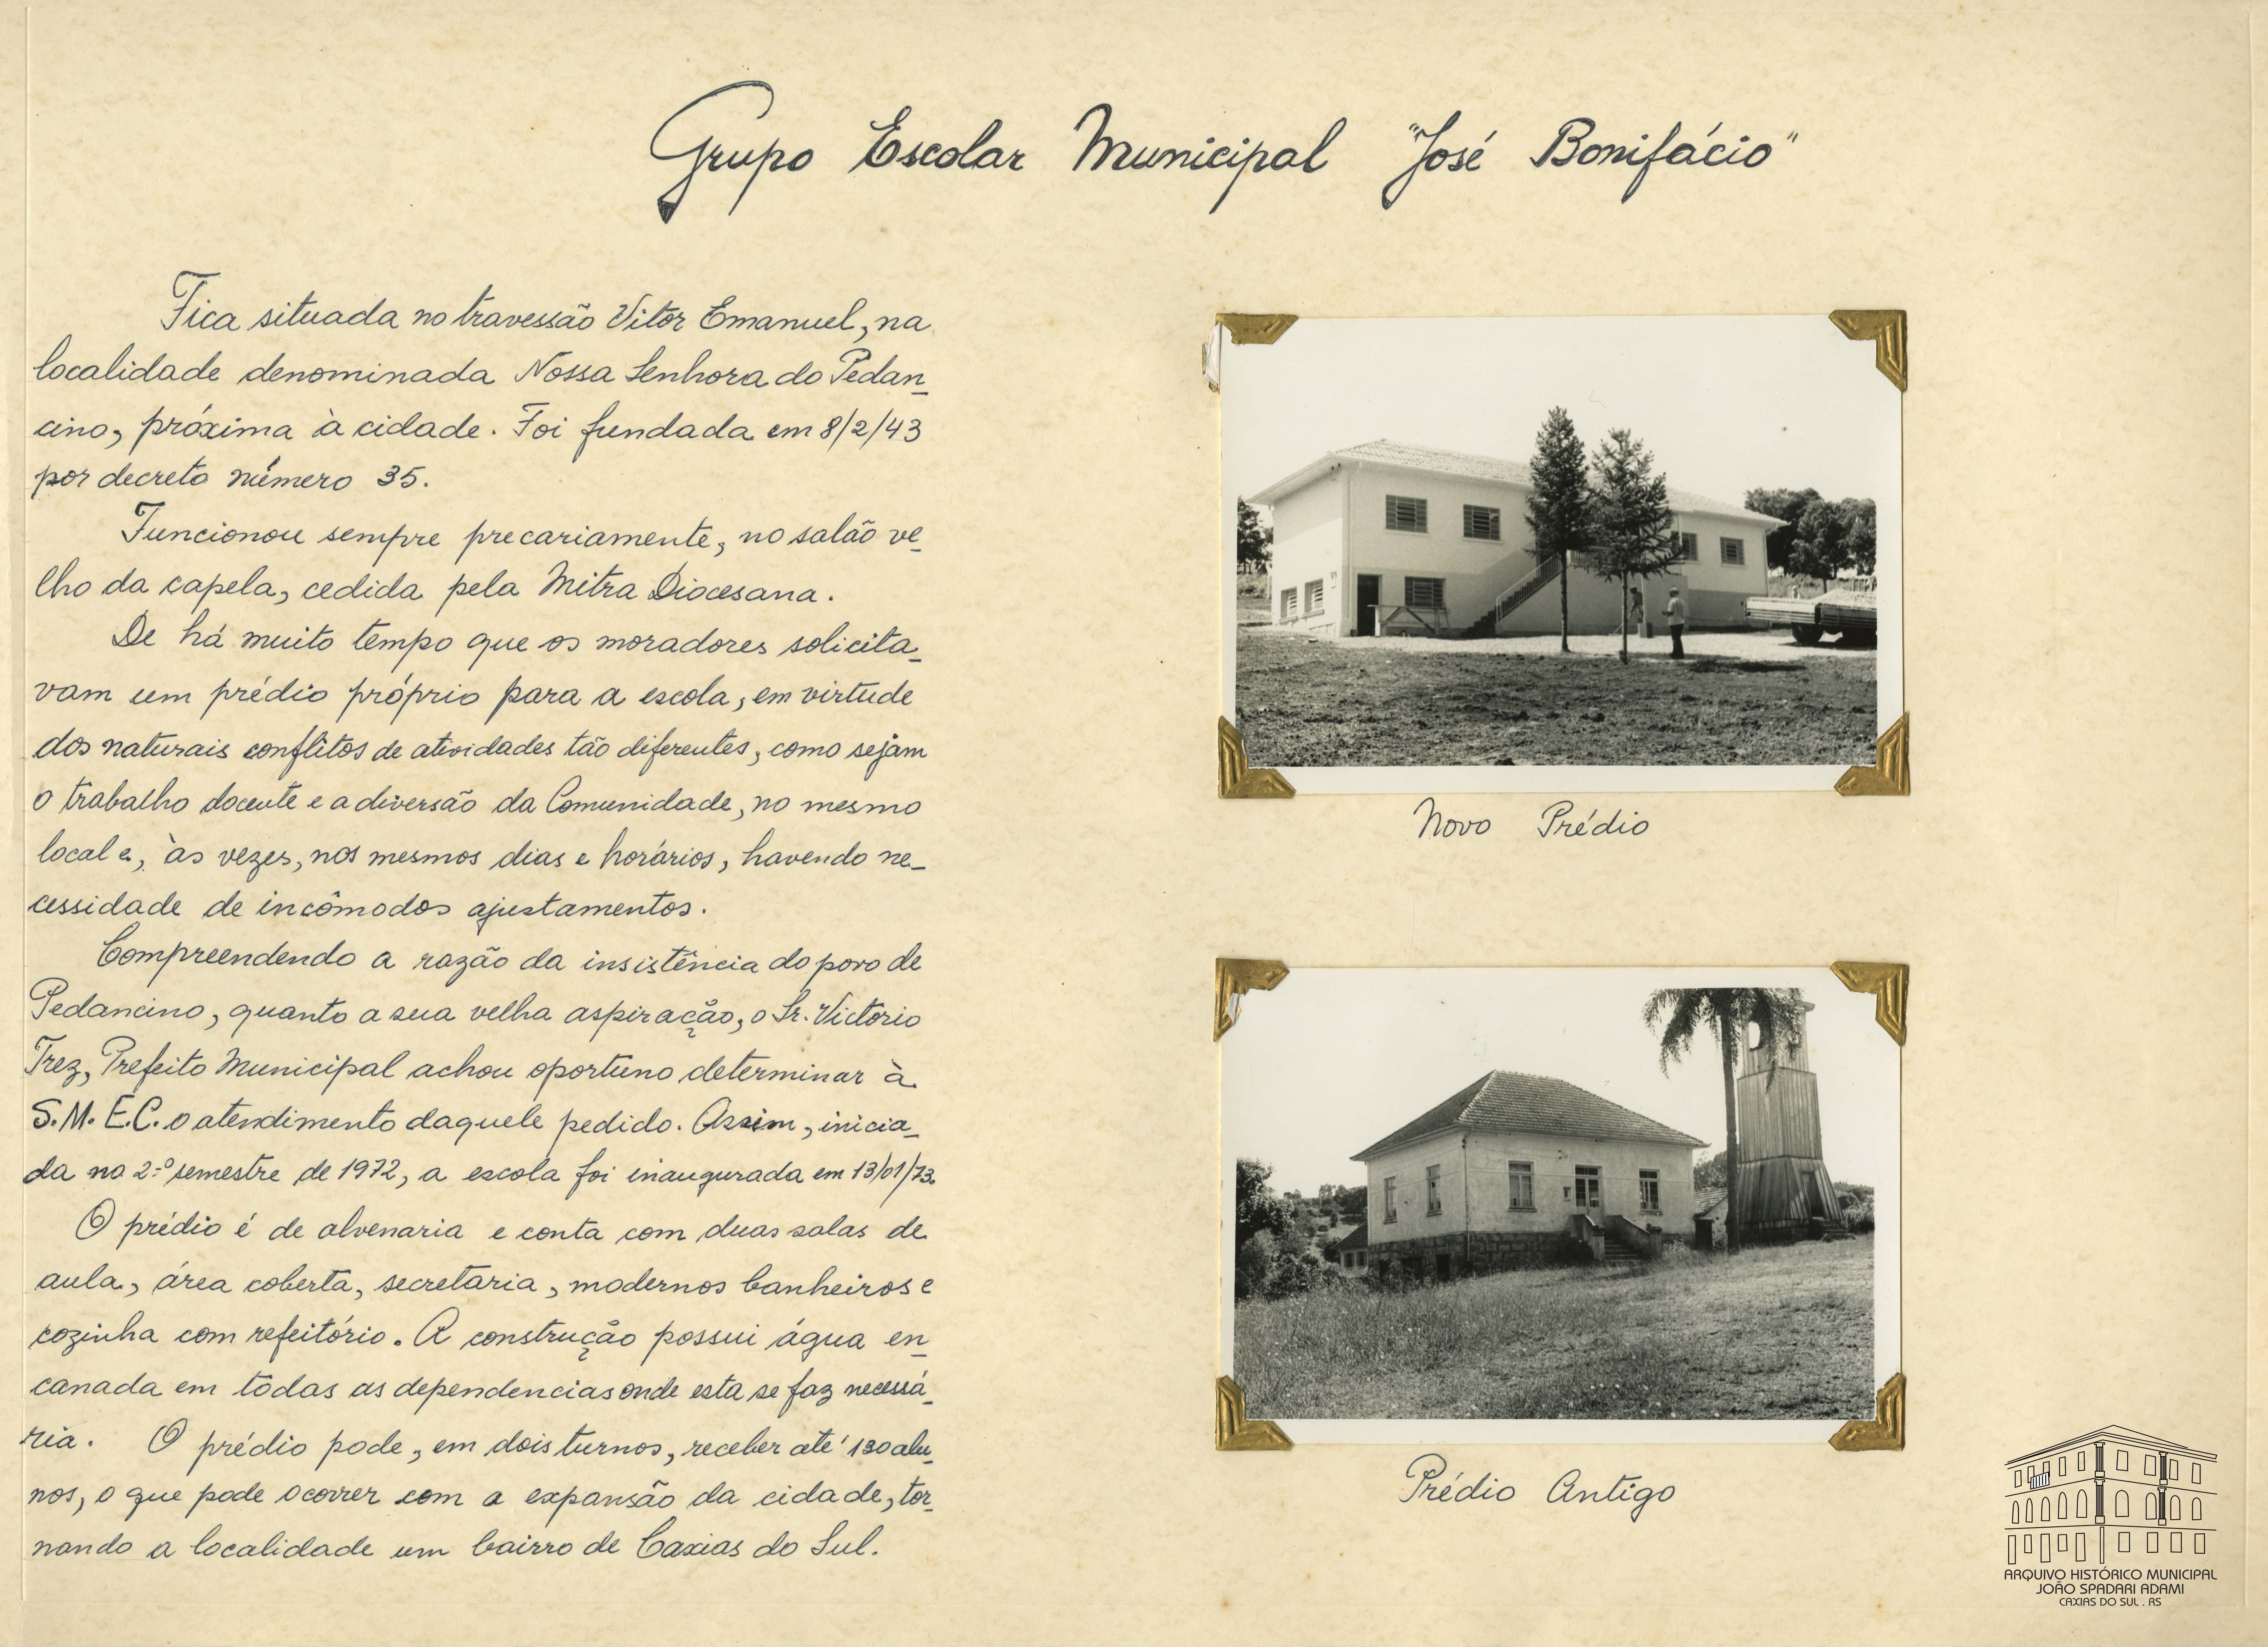 Grupo Escolar Municipal "José Bonifácio"
Fica situada no travessão Vitor Emanuel, na
localidade denominada Nossa Senhora do Pedan-
cino, próxima à cidade. Foi fundada em 8/2/43
por decreto número 35.
Funcionou sempre precariamente, no salão ve-
lho da capela, cedida pela Mitra Diocesana.
De há muito tempo que os moradores solicita-
vam um prédio próprio para a escola, em virtude
dos naturais conflitos de atividades tão diferentes, como sejam
o trabalho docente e a diversão da Comunidade, no mesmo
local e, às vezes, nos mesmos dias e horários, havendo ne-
cessidade de incômodos ajustamentos.
Compreendendo a razão da insistência do povo de
Pedancino, quanto a sua velha aspiração, o Sr. Victorio
Trez, Prefeito Municipal achou oportuno determinar à
S.M.E.C. o atendimento daquele pedido. Assim, inicia-
da no 2º semestre de 1972, a escola foi inaugurada em 13/01/73.
O prédio é de alvenaria e conta com duas salas de
aula, área coberta, secretaria, modernos banheiros e
cozinha com refeitório. A construção possui água en-
canada em todas as dependencias onde esta se faz necessá-
ria. O prédio pode, em dois turnos, receber até 130 alu-
nos, o que pode ocorrer com a expansão da cidade, tor-
nando a localidade um bairro de Caxias do Sul.
Novo Prédio
Prédio Antigo
ARQUIVO HISTÓRICO MUNICIPAL
JOÃO SPADARI ADAMI
CAXIAS DO SUL . RS